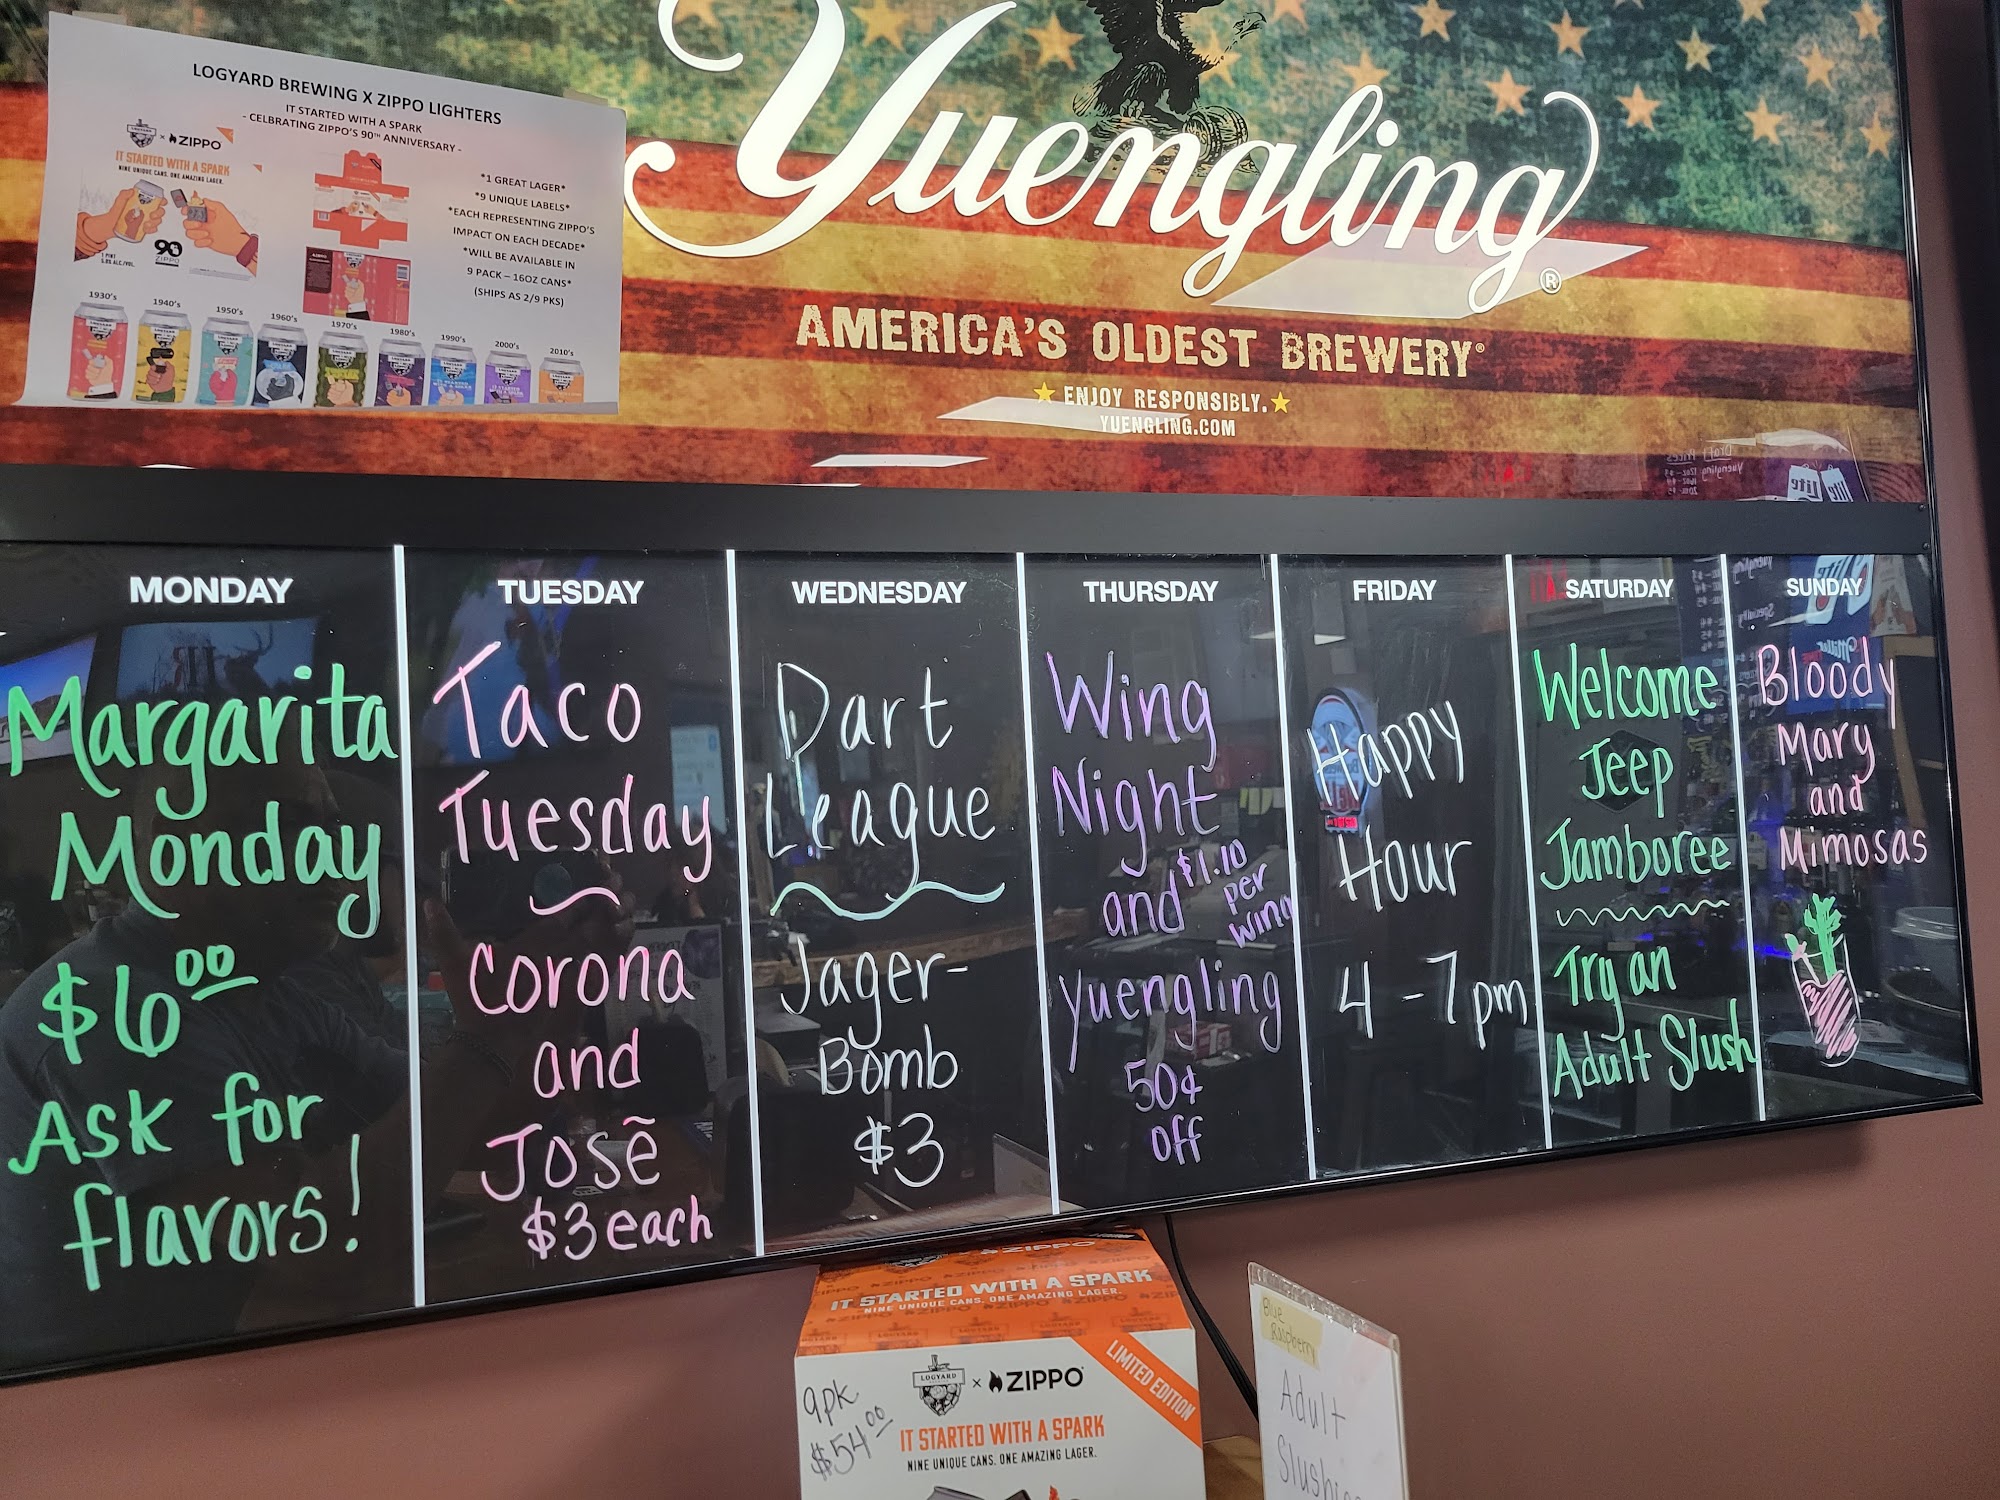 LOGYARD BREWING X ZIPPO LIGHTERS
IT STARTED WITH A SPARK
- CELBRATING ZIPPO'S 90TH ANNIVERSARY -
LOGYARD × ZIPPO
IT STARTED WITH A SPARK
NINE UNIQUE CANS. ONE AMAZING LAGER.
90
ZIPPO
1 PINT
*1 GREAT LAGER*
*9 UNIQUE LABELS*
*EACH REPRESENTING ZIPPO'S
IMPACT ON EACH DECADE*
*WILL BE AVAILABLE IN
9 PACK – 16OZ CANS*
(SHIPS AS 2/9 PKS)
1930's
1940's
1950's
1960's
1970's
1980's
1990's
2000's
2010's
Yuengling®
AMERICA'S OLDEST BREWERY®
ENJOY RESPONSIBLY.
YUENGLING.COM
MONDAY
Margarita
Monday
$6.00
Ask for
flavors!
TUESDAY
Taco
Tuesday
Corona
and
Josē
$3 each
WEDNESDAY
Dart
League
Jager-
Bomb
$3
THURSDAY
Wing
Night
and
$1.10
per
wing
Yuengling
50¢
off
FRIDAY
Happy
Hour
4 - 7pm
SATURDAY
Welcome
Jeep
Jamboree
Try an
Adult Slush
SUNDAY
Bloody
Mary
and
Mimosas
ZIPPO
IT STARTED WITH A SPARK
NINE UNIQUE CANS. ONE AMAZING LAGER.
LOGYARD × ZIPPO
LIMITED EDITION
9pk
$54.00
IT STARTED WITH A SPARK
NINE UNIQUE CANS. ONE AMAZING LAGER.
Blue
Raspberry
Adult